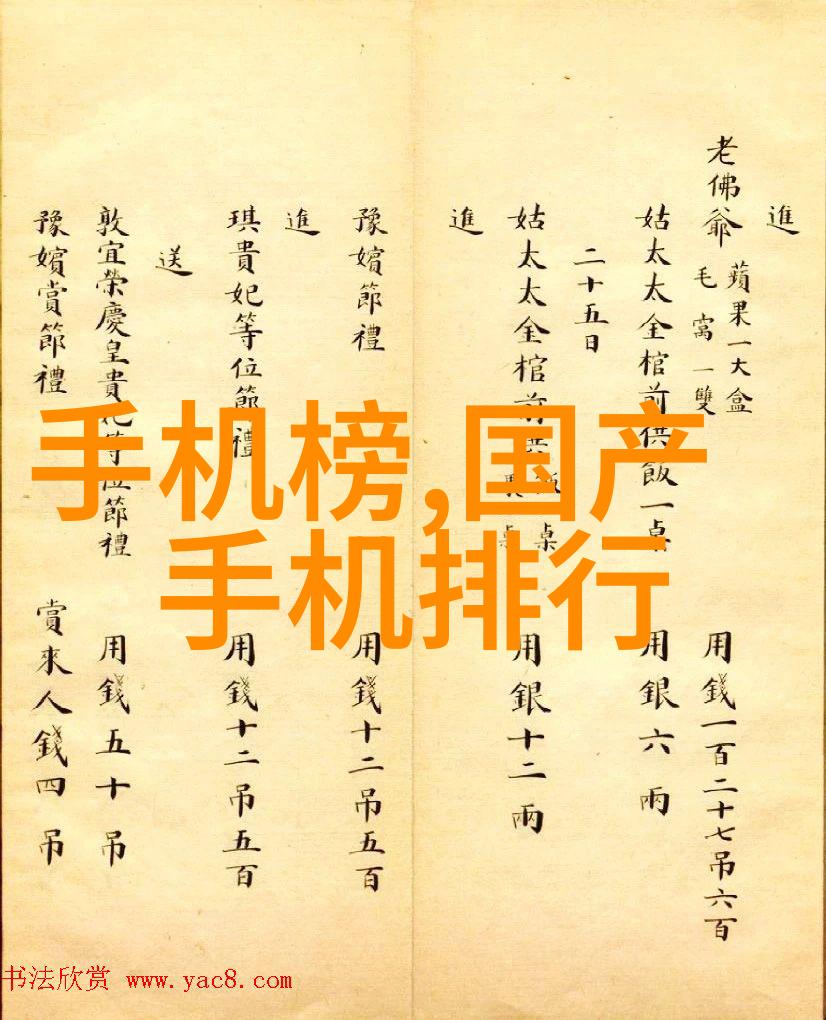 進
老佛爺 蘋果一大盒 毛窩一雙 用錢一百二十七吊六百
姑太太金棺前供飯一桌 用銀六兩
二十五日
姑太太金棺前供飯桌 果桌 用銀十二兩
進
豫嬪節禮 用錢十二吊五百
進
琪貴妃等位節禮 用錢十二吊五百
送
敦宜榮慶皇貴妃等位節禮 用錢五十吊
豫嬪賞節禮 賞來人錢四吊
手机榜,国产
手机排行
书法欣赏 www.yac8.com